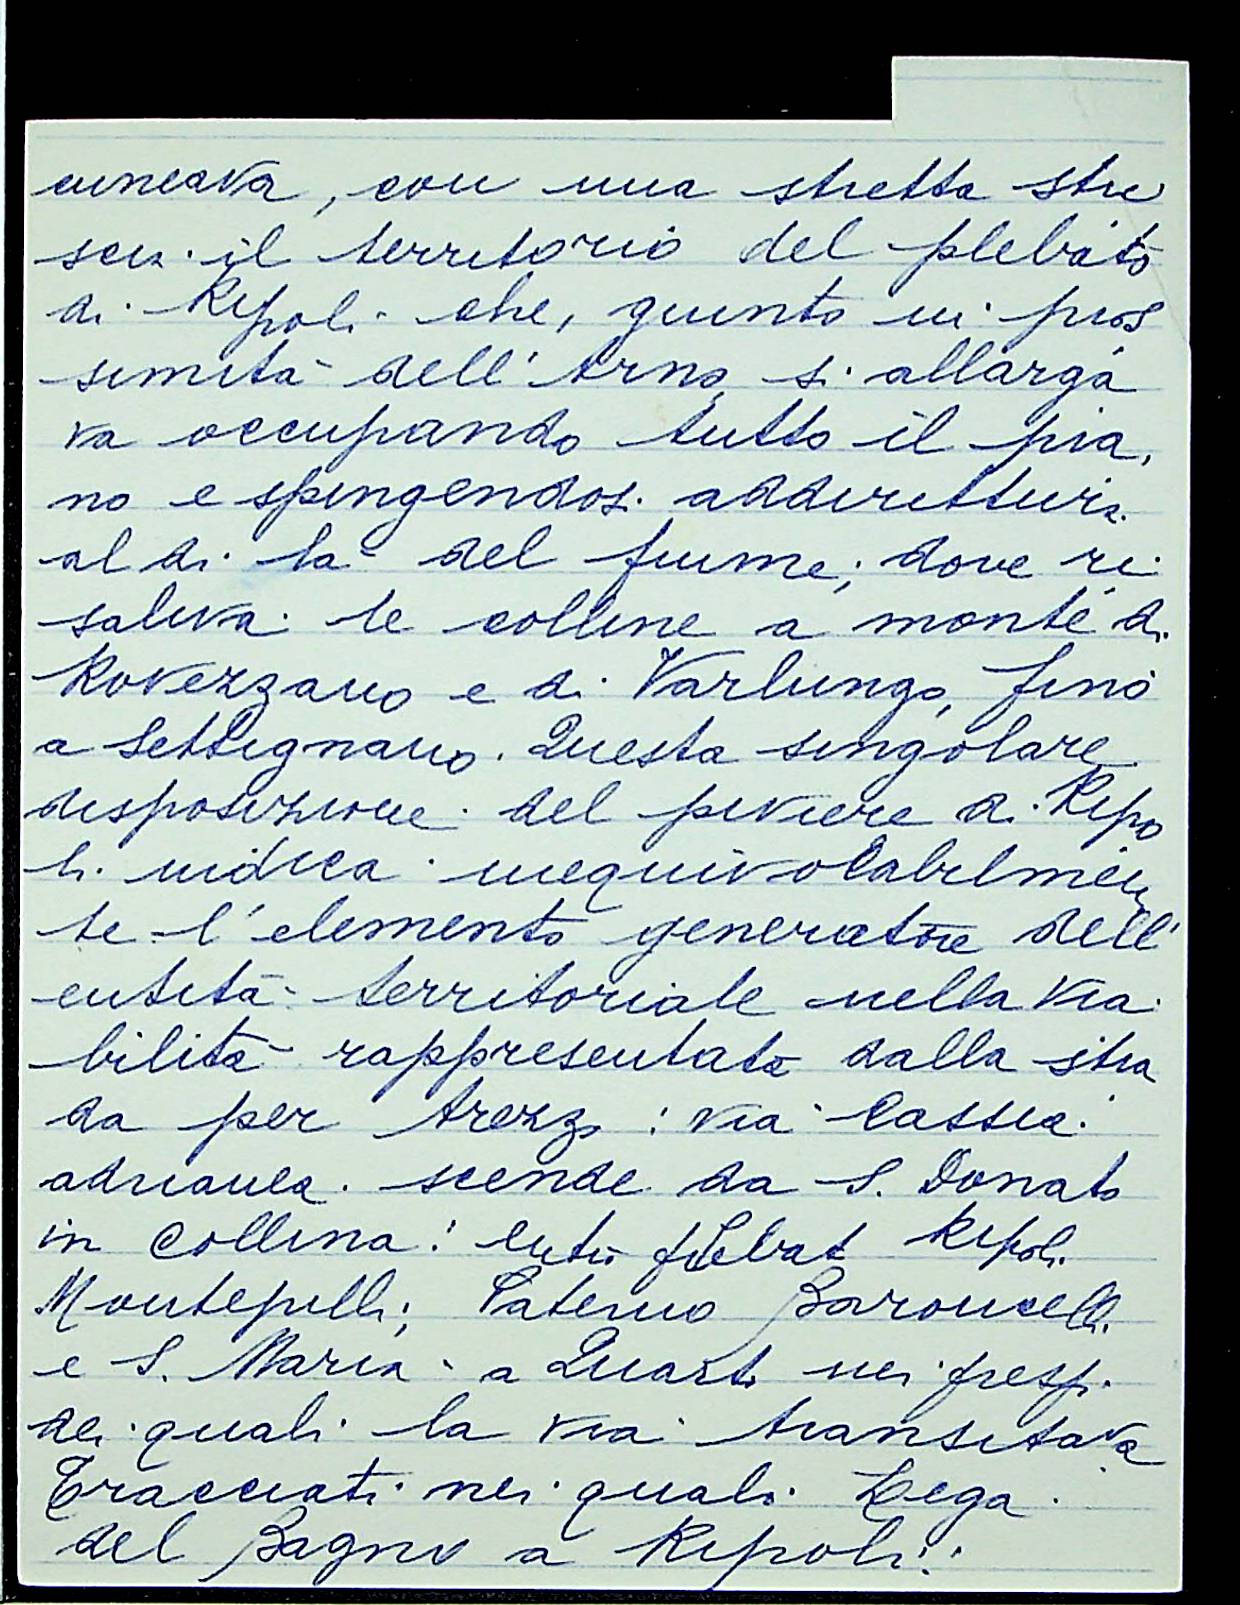 cuneava, con una stretta stri
scia il territorio del plebato
di Ripoli che, giunto in pros
simità dell'Arno, si allarga
va occupando tutto il pia,
no e spingendosi addirittura
al di là del fiume, dove ri
saliva le colline a monte di
Rovezzano e di Varlungo, fino
a Settignano. Questa singolare
disposizione del piviere di Ripo
li indica inequivocabilmen
te l'elemento generatore dell'
entità territoriale nella via
bilità rappresentata dalla stra
da per Arezzo: via Cassia
adrianea. scende da S. Donato
in Collina: Ripoli
Montepilli; Paterno Baroncelli
e S. Maria a Quarto nei pressi
dei quali la via transitava
Tracciati nei quali Lega
del Bagno a Ripoli: